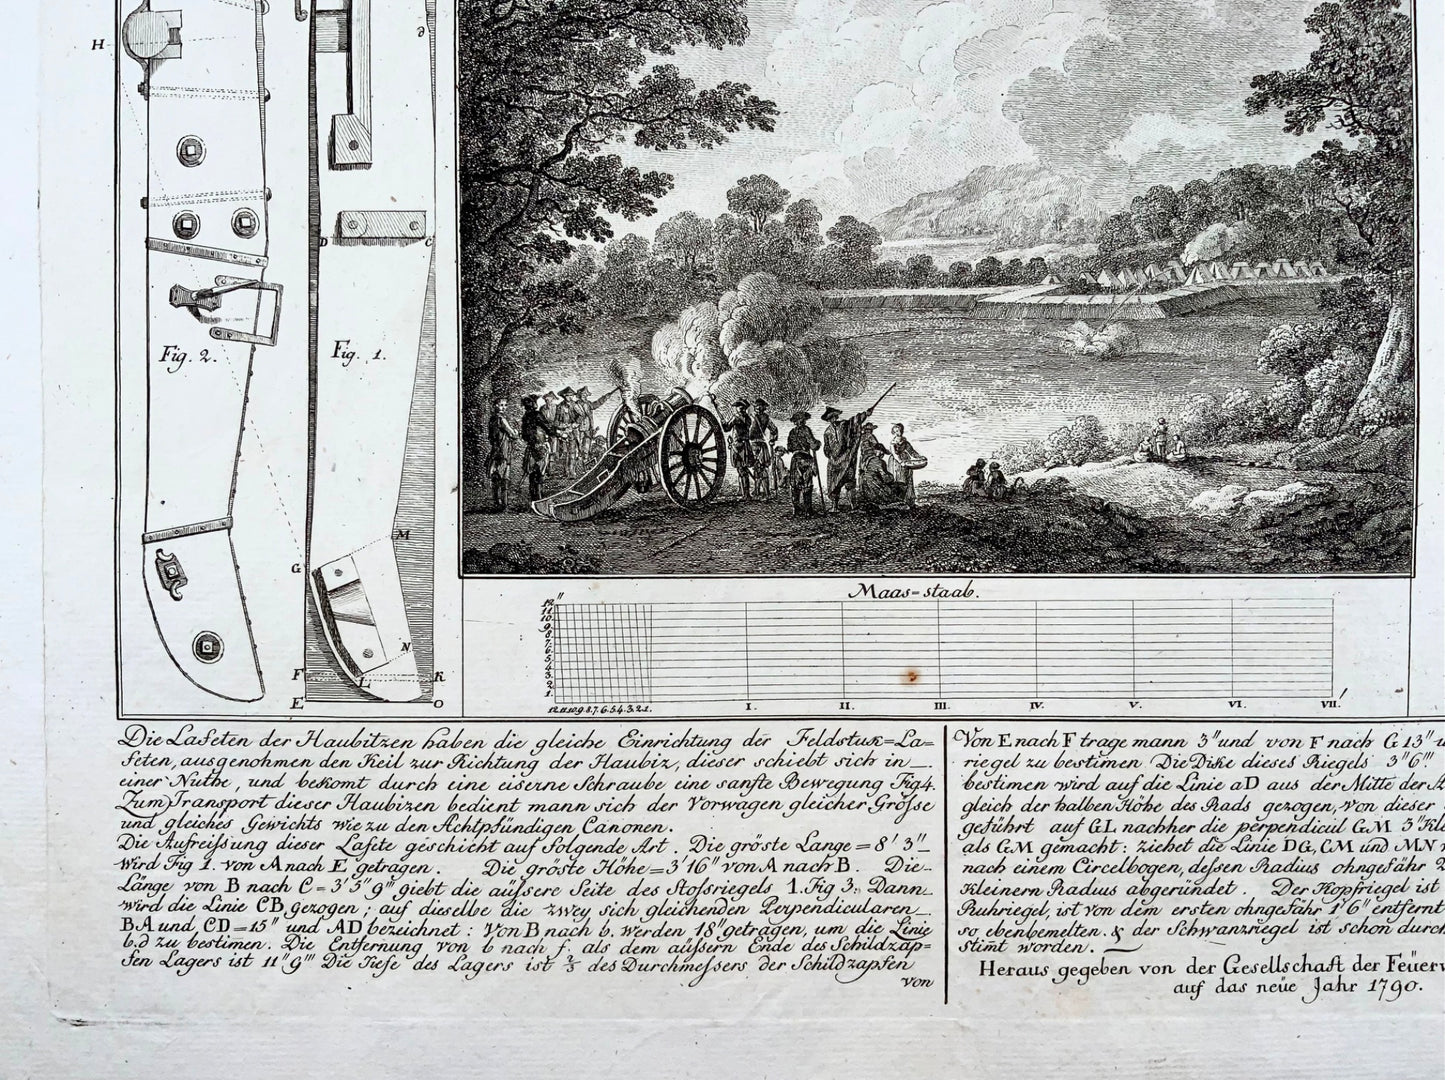 H
δ
D C
Fig. 2.
Fig. 1.
M
G
N
F L K
E O
Maas=staab.
12"
11
10
9
8
7
6
5
4
3
2
1.
12 11 10 9 8 7 6 5 4 3 2 1. I. II. III. IV. V. VI. VII. '
Die Lafeten der Haubitzen haben die gleiche Einrichtung der Feldstuk=La=
feten, ausgenohmen den Keil zur Richtung der Haubiz, dieser schiebt sich in
einer Nuthe, und bekomt durch eine eiserne Schraube eine sanfte Bewegung Fig 4.
Zum Transport dieser Haubizen bedient mann sich der Vorwagen gleicher Grösse
und gleiches Gewichts wie zu den Achtpfündigen Canonen.
Die Aufreissung dieser Lafete geschicht auf folgende Art. Die gröste Lange = 8' 3"
wird Fig 1. von A nach E getragen. Die gröste Höhe = 3' 16" von A nach B. Die
Länge von B nach C = 3' 5" 9''' giebt die aüssere Seite des Stossriegels 1. Fig 3. Dann
wird die Linie CB gezogen; auf dieselbe die zwey sich gleichenden Perpendicularen
BA und, CD = 15" und AD bezeichnet: Von B nach b. werden 18" getragen, um die Linie
b.d zu bestimen. Die Entfernung von b nach f. als dem aüssern Ende des Schildzap=
fen Lagers ist 11" 9''' Die Tiefe des Lagers ist ⅔ des Durchmessers der Schildzapfen
von
Von E nach F trage mann 3" und von F nach G 13"
riegel zu bestimen Die Dike dieses Riegels 3" 6'''
bestimen wird auf die Linie aD aus der Mitte der
gleich der halben Höhe des Rads gezogen, von dieser
geführt auf GL nachher die perpendicul GM 3"
als GM gemacht: ziehet die Linie DG, CM und MN
nach einem Circelbogen, dessen Radius ohngefähr
kleinern Radius abgeründet. Der Kopfriegel ist
Ruhriegel, ist von dem ersten ohngefähr 1' 6" entfernt
so ebenbemelten. & der Schwanzriegel ist schon durch
stimt worden.
Heraus gegeben von der Gesellschaft der
auf das neüe Jahr 1790.